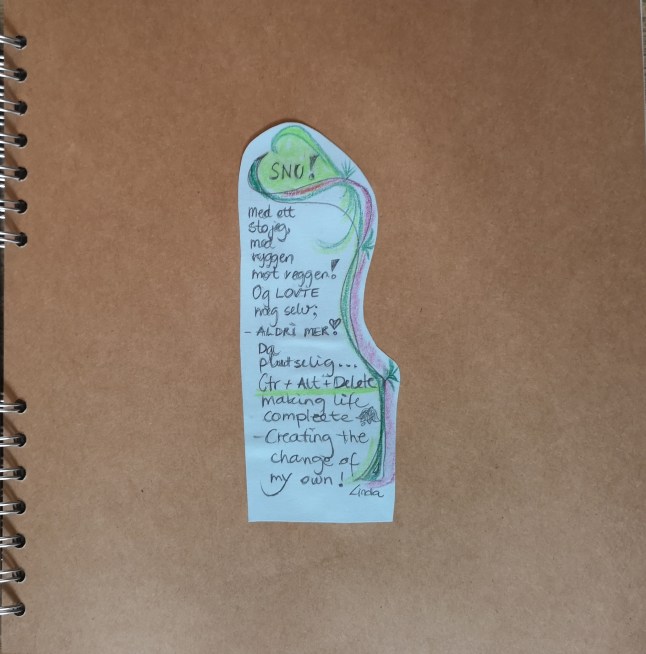 SNU!
Med ett
sto jeg,
med
ryggen
mot veggen!
Og LOVTE
meg selv;
- ALDRI MER!
Da
plutselig...
Ctr + Alt + Delete
making life
compleete
- Creating the
change of
my own!
Linda